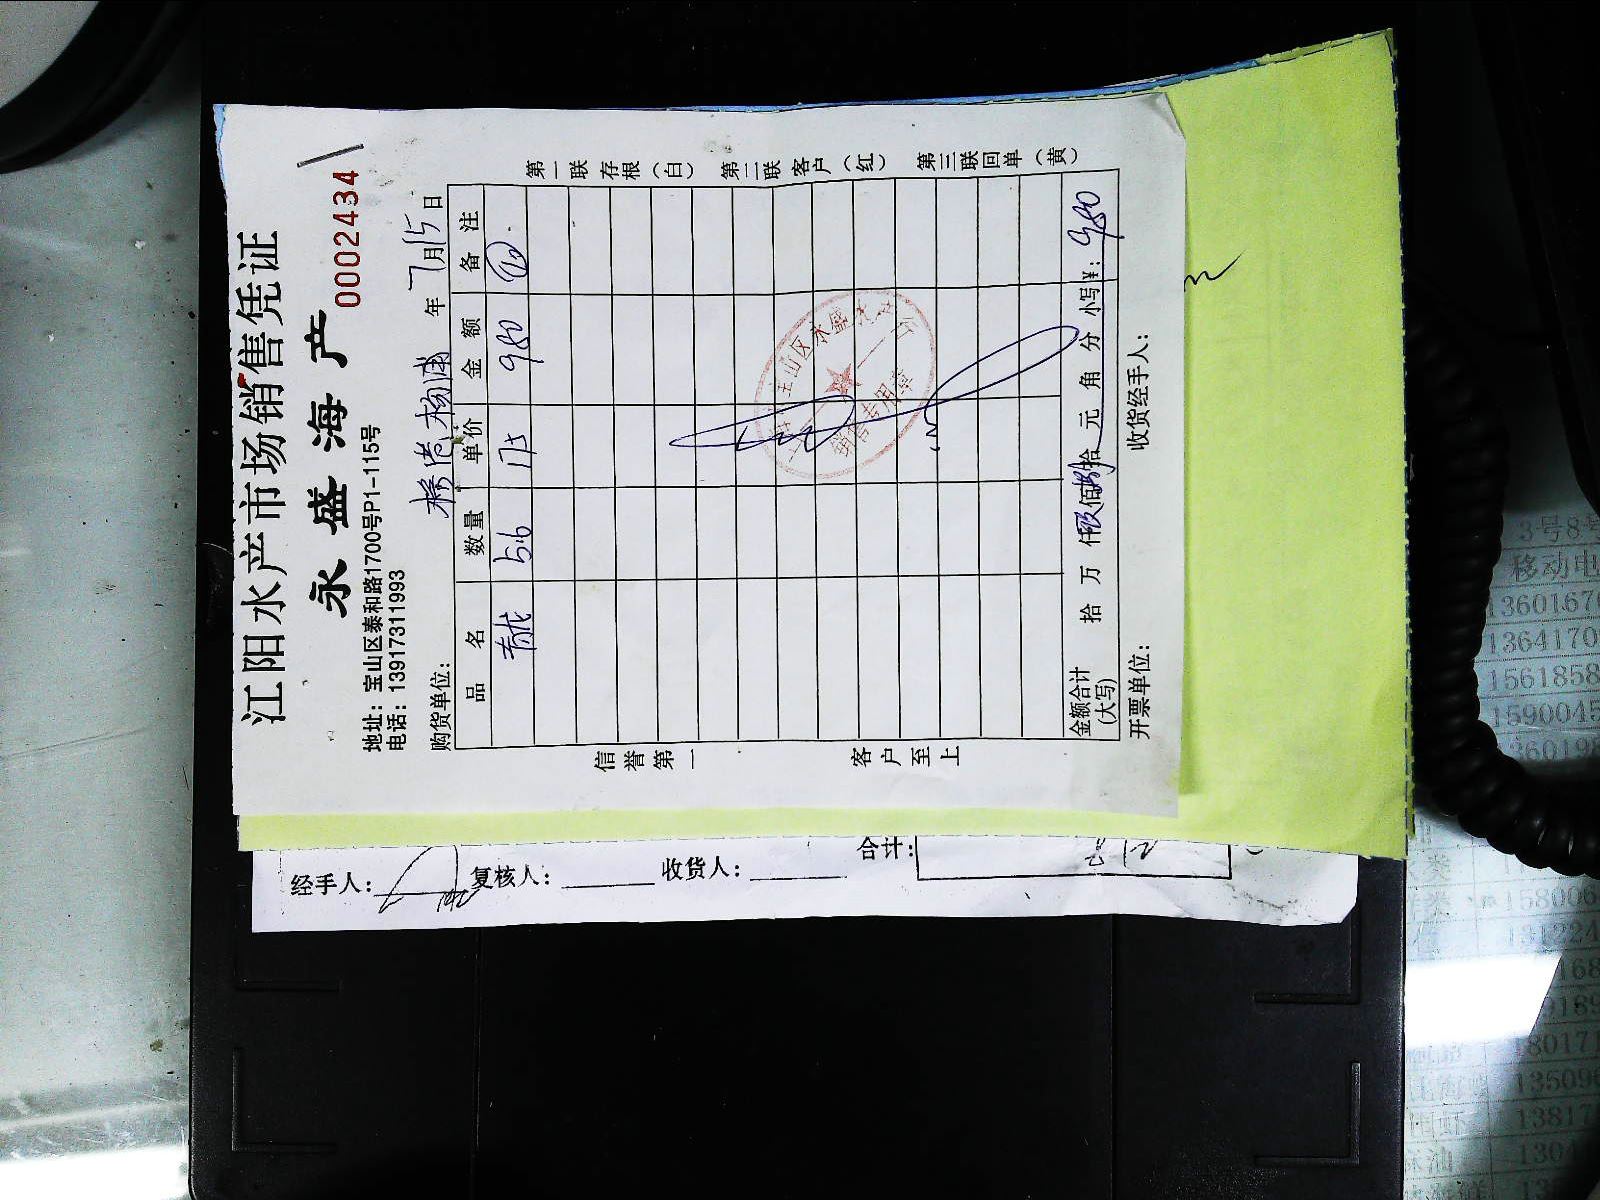 江阳水产市场销售凭证
永盛海产
0002434
地址：宝山区泰和路1700号P1-115号
电话：13917311993
购货单位： 杨浦 年 7月15日
品名 数量 单价 金额 备注
青龙 5.6 175 980
金额合计(大写) 拾 万 仟 玖佰捌拾 元 角 分 小写¥： 980
开票单位： 收货经手人：
第一联存根（白） 第二联客户（红） 第三联回单（黄）
信誉第一 客户至上
宝山区永盛
销售专用章
经手人： 复核人： 收货人：
合计：
3号8号
移动电
1360167
1364170
1561858
1590045
36019
类
158006
13122
168
0189
18017
13509
1381
1304